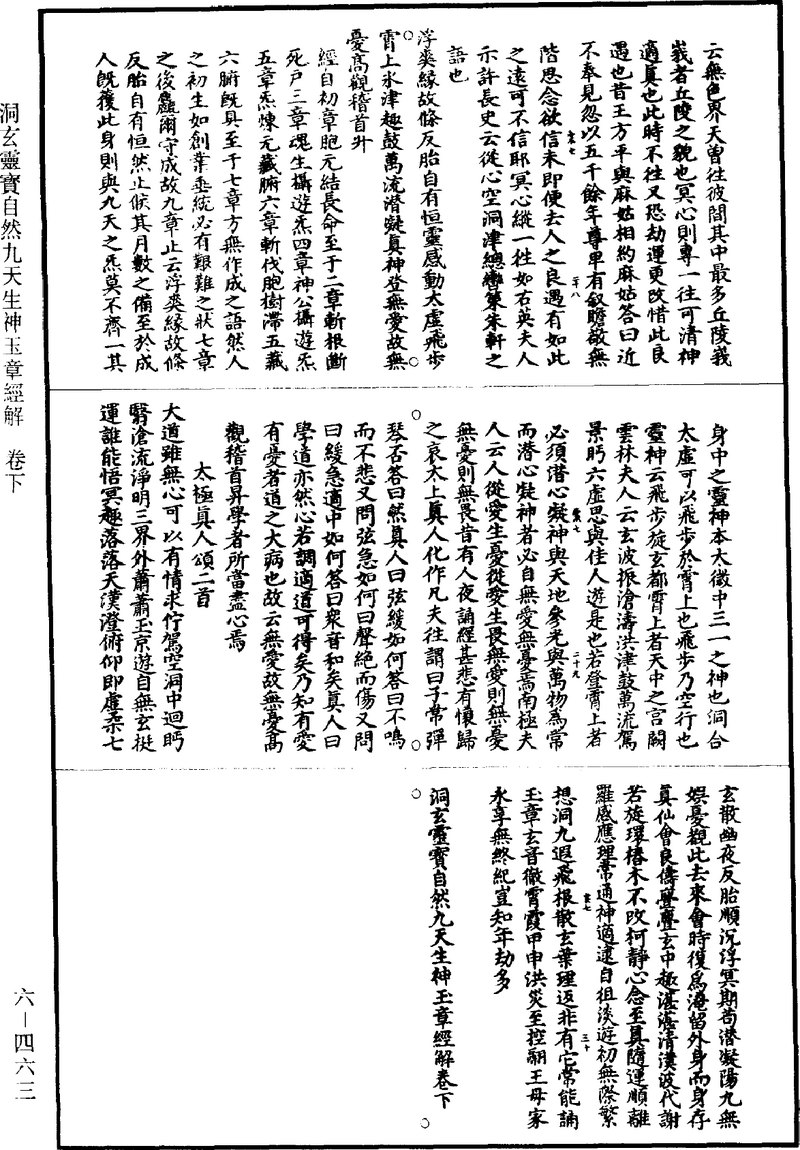 云無色界天曾往彼閣其中最多丘陵峩
峩者丘陵之貌也冥心則專一往可清神
適真也此時不往又恐劫運更改惜此良
遇也昔王方平與麻姑相約麻姑答曰近
不奉見忽以五千餘年尊卑有叙瞻敬無
階思念欲信未即便去人之良遇有如此
之遠可不信耶冥心縱一往如右英夫人
示許長史云從心空洞津總轡策朱軒之
語也
浮爽緣故條反胎自有恒靈感動太虛飛步
霄上氷津趣鼓萬流潛凝真神登無愛故無
憂高觀稽首升
經自初章胞元結長命至于二章斬根斷
死戶三章魂生攝遊炁四章神公攝遊炁
五章炁煉元藏腑六章斬伐胞樹滯五藏
六腑既具至于七章方無作成之語然人
之初生如創業垂統必有艱難之狀七章
之後麤爾守成故九章止云浮爽緣故條
反胎自有恒然止候其月數之備至於成
人既獲此身則與九天之炁莫不齊一其
身中之靈神本太微中三一之神也洞合
太虛可以飛步於霄上也飛步乃空行也
靈神云飛步旋玄都霄上者天中之言闕
雲林夫人云玄波振滄濤洪津鼓萬流駕
景眄六虛思與佳人遊是也若登霄上者
必須潛心凝神與天地參光與萬物為常
而潛心凝神者必自無愛無憂焉南極夫
人云人從愛生憂從愛生畏無愛則無憂
無憂則無畏昔有人夜誦經甚悲有懷歸
之哀太上真人化作凡夫往謂曰子常彈
琴否答曰然真人曰弦緩如何答曰不鳴
而不悲又問弦急如何曰聲絶而傷又問
曰緩急適中如何答曰衆音和矣真人曰
學道亦然心若調適道可得矣乃知有愛
有憂者道之大病也故云無愛故無憂高
觀稽首昇學者所當盡心焉
太極真人頌二首
大道雖無心可以有情求佇駕空洞中迴眄
翳滄流淨明三界外蕭蕭玉京遊自無玄挺
運誰能悟冥趣落落天漢澄俯仰即虛柔七
玄散幽夜反胎順沉浮冥期苟潛凝陽九無
娛憂觀此去來會時復為淹留外身而身存
真仙會良儔亹亹玄中趣湛湛清漢波代謝
若旋環椿木不改柯靜心念至真隨運順離
羅感應理常通神適逮自徂淡遊初無際繁
想洞九遐飛根散玄葉理返非有它常能誦
玉章玄音徹霄霞甲申洪災至控翮王母家
永享無終紀豈知年劫多
洞玄靈寶自然九天生神玉章經解卷下
洞玄靈寶自然九天生神玉章經解　卷下
六—四六三